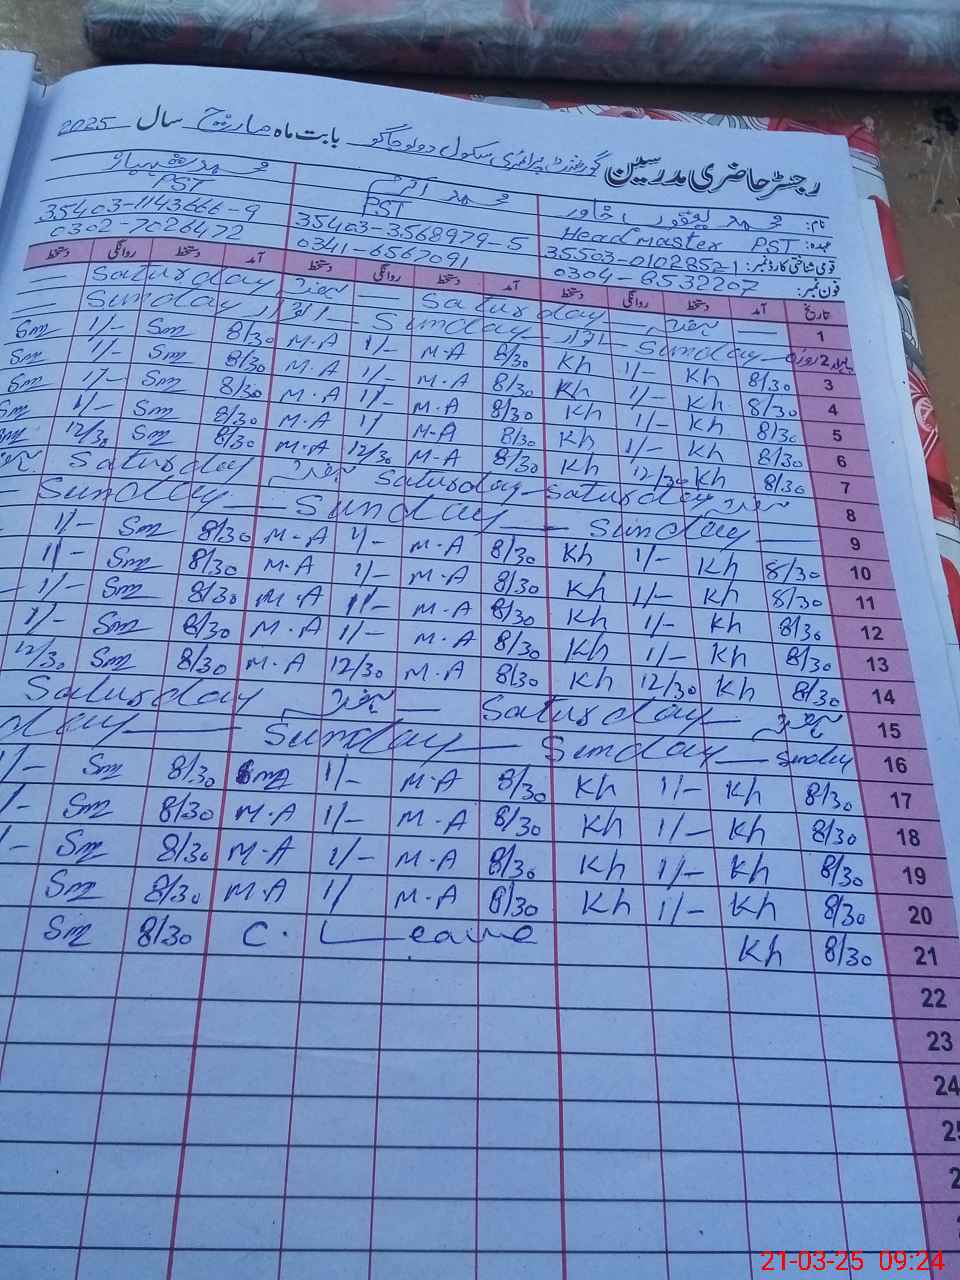 رجسٹر حاضری مدرسین گورنمنٹ پرائمری سکول بابت ماہ مارچ سال 2025
نام: محمد یعقوب خاور محمد اکرم محمد شہباز
عہدہ: Head master PST PST PST
قومی شناختی کارڈ نمبر: 35503-0102852-1 35403-3568979-5 35403-1143666-9
فون نمبر: 0304-8532207 0341-6567091 0302-7026472
تاریخ آمد دستخط روانگی دستخط آمد دستخط روانگی دستخط آمد دستخط روانگی دستخط
1 ہفتہ Saturday ہفتہ Saturday
2 Sunday اتوار Sunday اتوار Sunday
3 8/30 Kh 1/- Kh 8/30 M.A 1/- M.A 8/30 Sm 1/- Sm
4 8/30 Kh 1/- Kh 8/30 M.A 1/- M.A 8/30 Sm 1/- Sm
5 8/30 Kh 1/- Kh 8/30 M.A 1/- M.A 8/30 Sm 1/- Sm
6 8/30 Kh 1/- Kh 8/30 M.A 1/ M.A 8/30 Sm 1/- Sm
7 8/30 Kh 12/30 Kh 8/30 M.A 12/30 M.A 8/30 Sm 12/30 Sm
8 ہفتہ Saturday Saturday ہفتہ Saturday
9 Sunday Sunday Sunday
10 8/30 Kh 1/- Kh 8/30 M.A 1/- M.A 8/30 Sm 1/-
11 8/30 Kh 1/- Kh 8/30 M.A 1/- M.A 8/30 Sm 1/-
12 8/30 Kh 1/- Kh 8/30 M.A 1/- M.A 8/30 Sm 1/-
13 8/30 Kh 1/- Kh 8/30 M.A 1/- M.A 8/30 Sm 1/-
14 8/30 Kh 12/30 Kh 8/30 M.A 12/30 M.A 8/30 Sm 12/30
15 ہفتہ Saturday ہفتہ Saturday
16 Sunday Sunday Sunday day
17 8/30 Kh 1/- Kh 8/30 M.A 1/- 8/30 Sm 1/-
18 8/30 Kh 1/- Kh 8/30 M.A 1/- M.A 8/30 Sm /-
19 8/30 Kh 1/- Kh 8/30 M.A 1/- M.A 8/30 Sm /-
20 8/30 Kh 1/- Kh 8/30 M.A 1/ M.A 8/30 Sm
21 8/30 Kh C. Leave 8/30 Sm
22
23
24
25
21-03-25 09:24